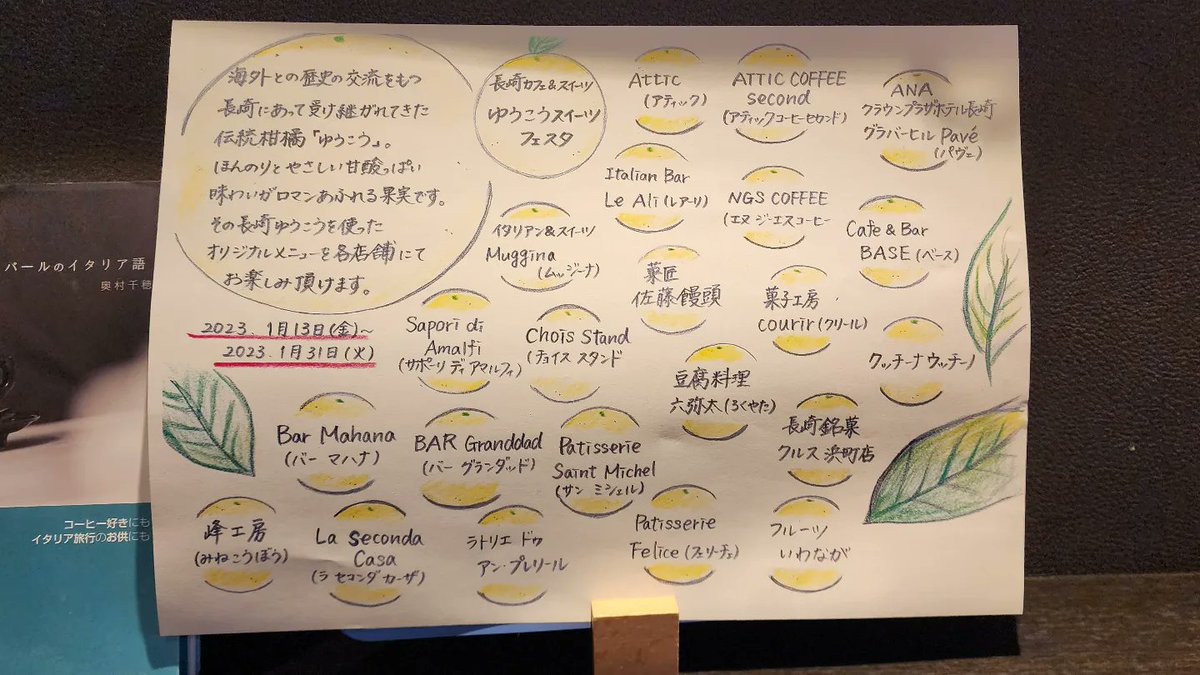 海外との歴史の交流をもつ
長崎にあって受け継がれてきた
伝統柑橘「ゆうこう」。
ほんのりとやさしい甘酸っぱい
味わいがロマンあふれる果実です。
その長崎ゆうこうを使った
オリジナルメニューを各店舗にて
お楽しみ頂けます。
2023.1月13日(金)~
2023.1月31日(火)
長崎カフェ&スイーツ
ゆうこうスイーツ
フェスタ
Attic
(アティック)
ATTIC COFFEE
second
(アティックコーヒーセカンド)
ANA
クラウンプラザホテル長崎
グラバーヒル Pavé
(パヴェ)
Italian Bar
Le Ali (レアーリ)
NGS COFFEE
(エヌ ジーエスコーヒー
Cafe & Bar
BASE (ベース)
イタリアン&スイーツ
Muggina
(ムッジーナ)
菓匠
佐藤饅頭
菓子工房
courir (クリール)
Sapori di
Amalfi
(サポーリ ディ アマルフィ)
Chois Stand
(チョイス スタンド
クッチーナ ウッチーノ
豆腐料理
六弥太 (ろくやた)
長崎銘菓
クルス 浜町店
Bar Mahana
(バー マハナ)
BAR Granddad
(バー グランダッド)
Patisserie
Saint Michel
(サン ミシェル)
峰工房
(みねこうぼう)
La seconda
Casa
(ラ セコンダ カーザ)
ラトリエ ドゥ
アン・プレリール
Patisserie
Felice (フェリーチェ)
フルーツ
いわなが
バールのイタリア語
奥村千穂
コーヒー好きにも
イタリア旅行のお供にも